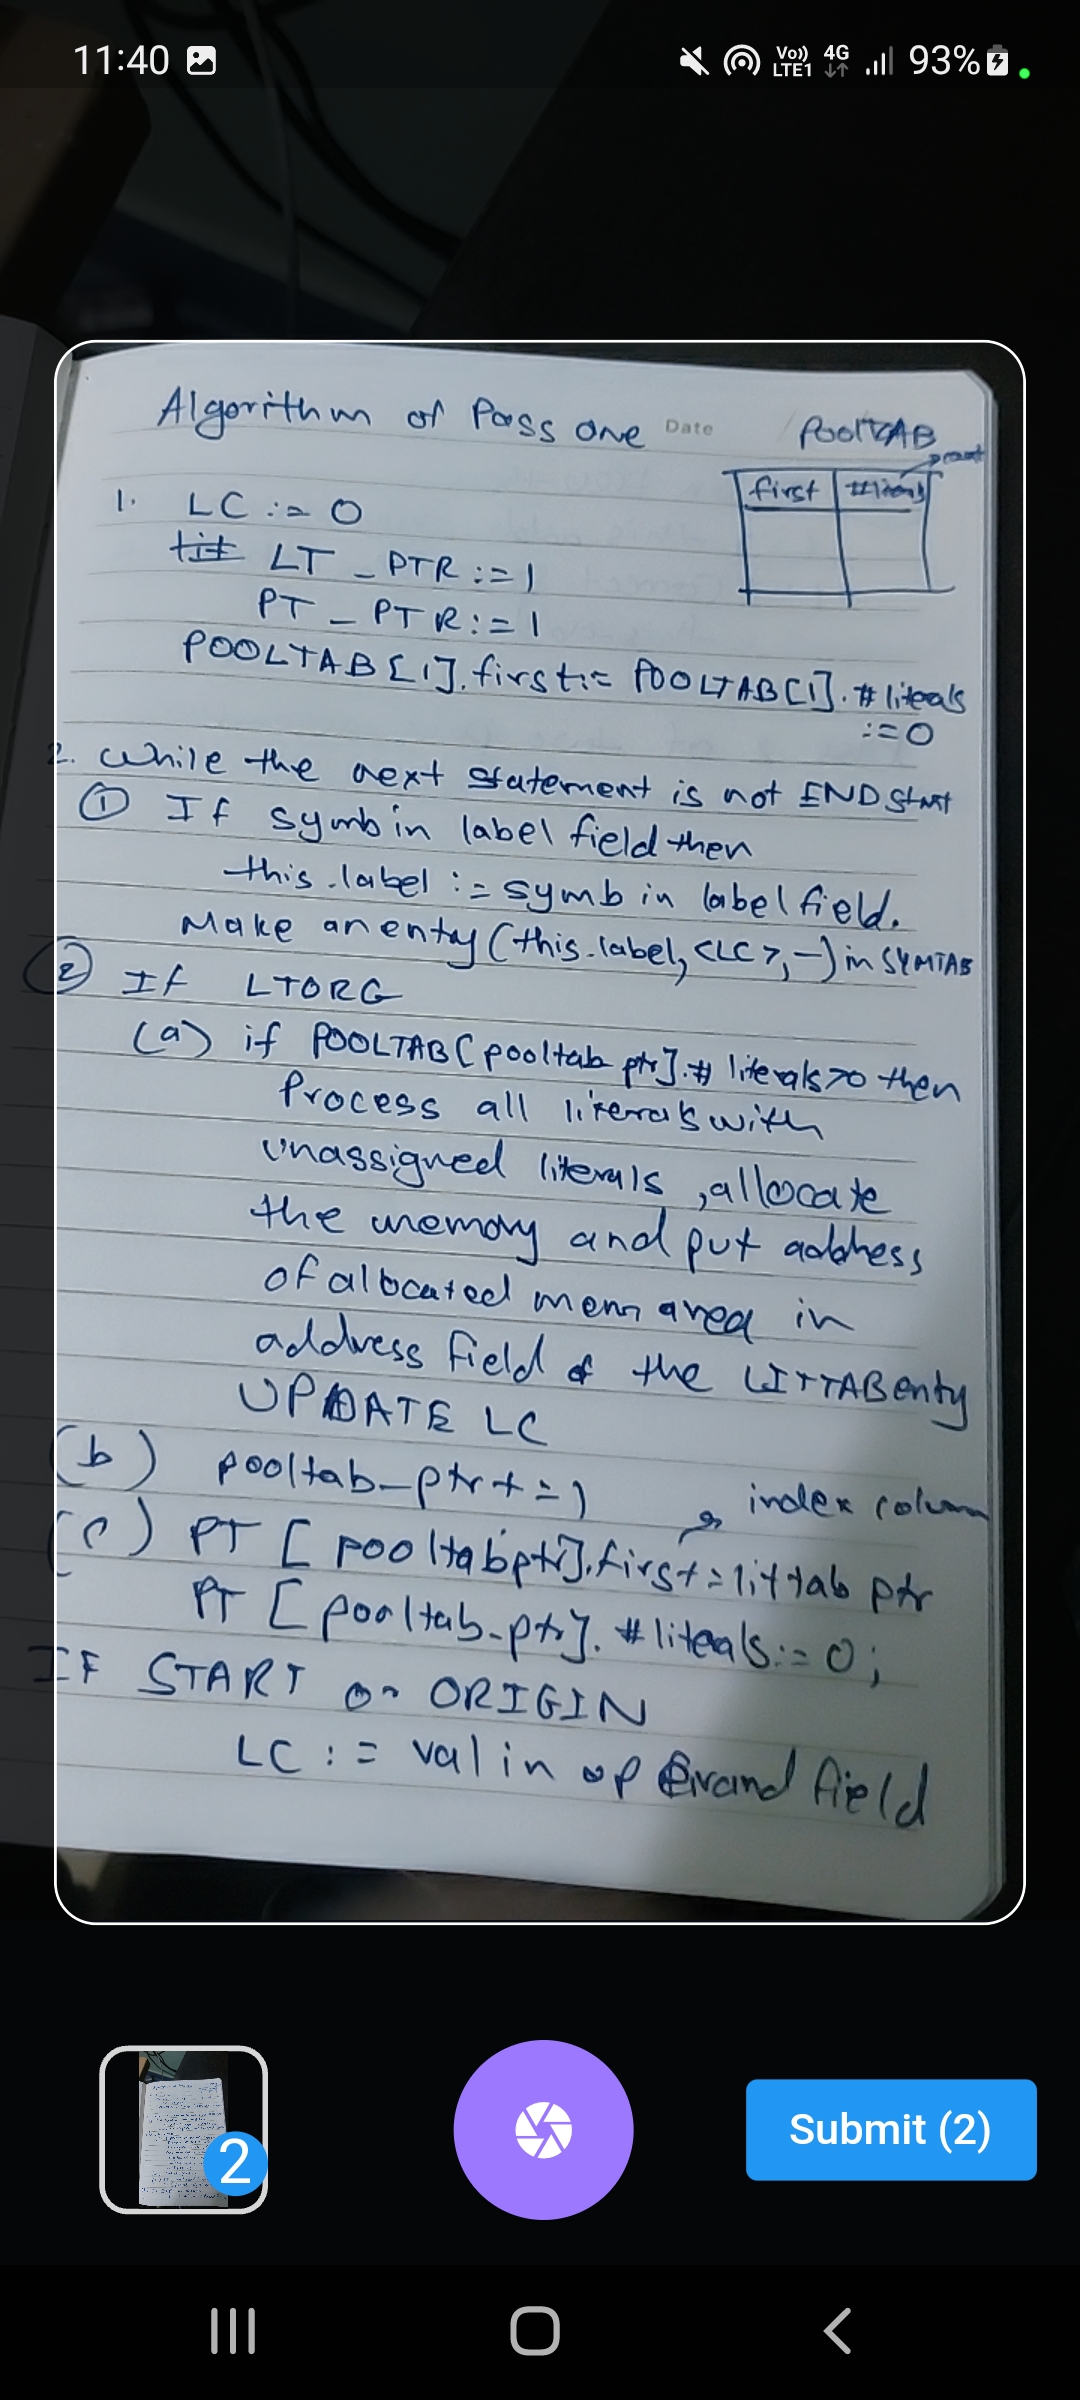 11:40
Vo)) LTE1 4G 93%
Algorithm of Pass one Date POOLTAB
first #literals
1. LC := 0
LT_PTR := 1
PT_PTR := 1
POOLTAB[1].first := POOLTAB[1].#literals
:= 0
2. While the next statement is not END stmt
① If symb in label field then
this.label := symb in label field.
Make an entry (this.label, <LC>, —) in SYMTAB
② If LTORG
(a) if POOLTAB[pooltab ptr].#literals>0 then
Process all literals with
unassigned literals, allocate
the memory and put address
of allocated mem area in
address field of the LITTAB enty
UPDATE LC
(b) pooltab_ptr+=1
index column
(c) PT [pooltabptr].first=littab ptr
PT [pooltab_ptr].#literals:=0;
IF START or ORIGIN
LC := val in operand field
2
Submit (2)